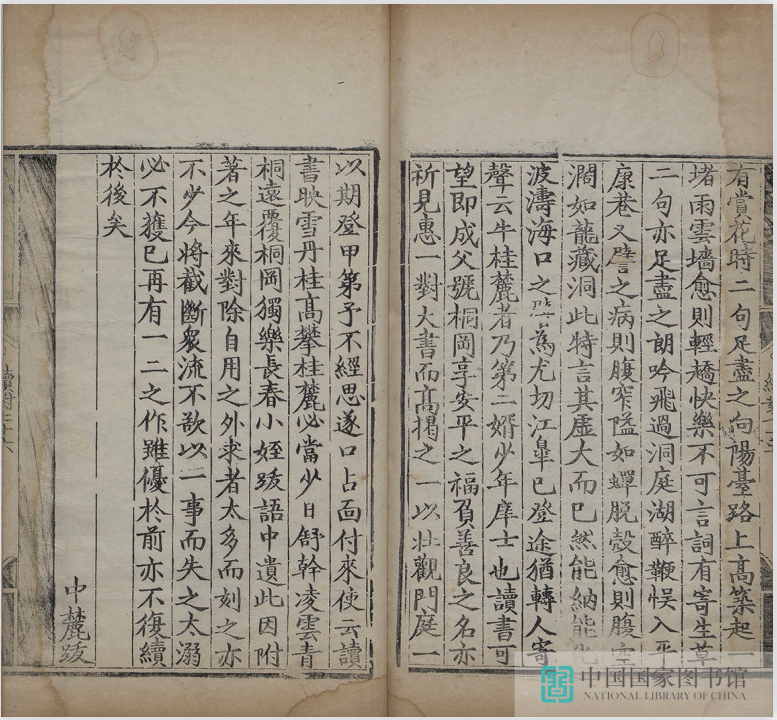 有賞花時二句足盡之向陽臺路上高築起一
堵雨雲墻愈則輕趫快樂不可言詞有寄生草
二句亦足盡之朗吟飛過洞庭湖醉鞭悮入平
康巷又譬之病則腹窄隘如蟬脫殼愈則腹空
濶如龍藏洞此特言其虛大而已然能納能
波濤海口之 焉尤切江臯已登途猶轉人寄
聲云牛桂麓者乃第二婿少年庠士也讀書可
望即成父號桐岡享安平之福負善良之名亦
祈見惠一對大書而高揭之一以壯觀門庭一
以期登甲第予不經思遂口占面付來使云讀
書映雪丹桂高攀桂麓必當少日舒幹凌雲青
桐遠覆桐岡獨樂長春小姪跋語中遺此因附
著之年來對除自用之外求者太多而刻之亦
不少今將截斷衆流不欲以一事而失之太溺
必不獲已再有一二之作雖優於前亦不復續
於後矣
中麓跋
中国国家图书馆
NATIONAL LIBRARY OF CHINA